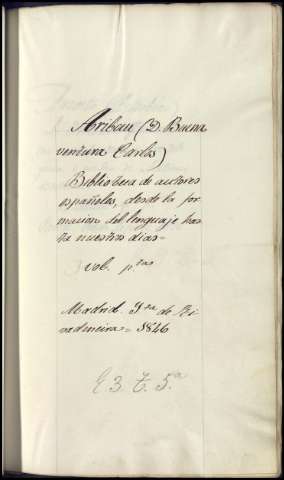 Aribau (D. Buena
ventura Carlos)
Biblioteca de autores
españoles, desde la for
macion del lenguaje has
ta nuestros dias =
vol. ptas
Madrid. Yta de Ri
vadeneira = 1846
E 3. T. 5.a